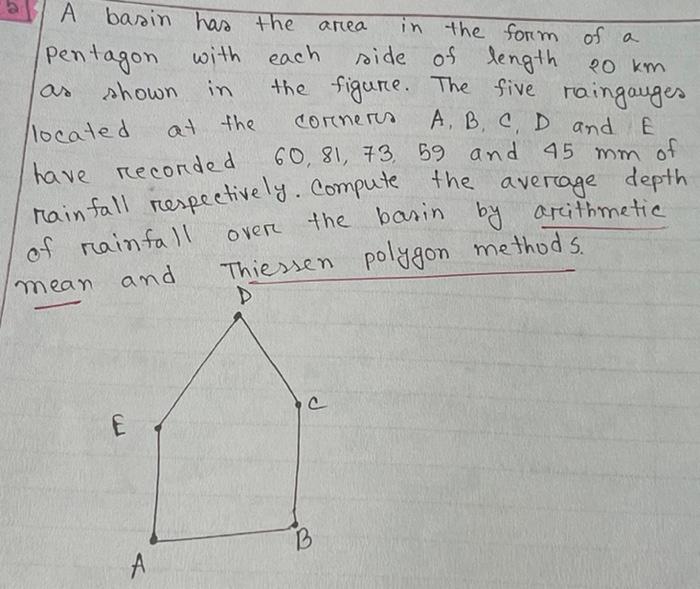 5
A basin has the area in the form of a
pentagon with each side of length 20 km
as shown in the figure. The five raingauges
located at the corners A, B, C, D and E
have recorded 60, 81, 73, 59 and 45 mm of
rainfall respectively. Compute the average depth
of rainfall over the basin by arithmetic
mean and Thiessen polygon methods.
D
E
C
A
B